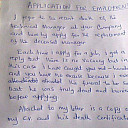 APPLICATION FOR EMPLOYMENT
I to the
Technical Manager in your Company
and hereby apply for the
the deceased manager.
Each time I apply for a job, I get a
reply that there is no vacancy but in
this case I have caught you red-handed
and you have no excuse because I
even attended the funeral to be sure
that he was truly dead and buried
before applying.
Attached to my letter is a copy of
my CV and his death Certificate.